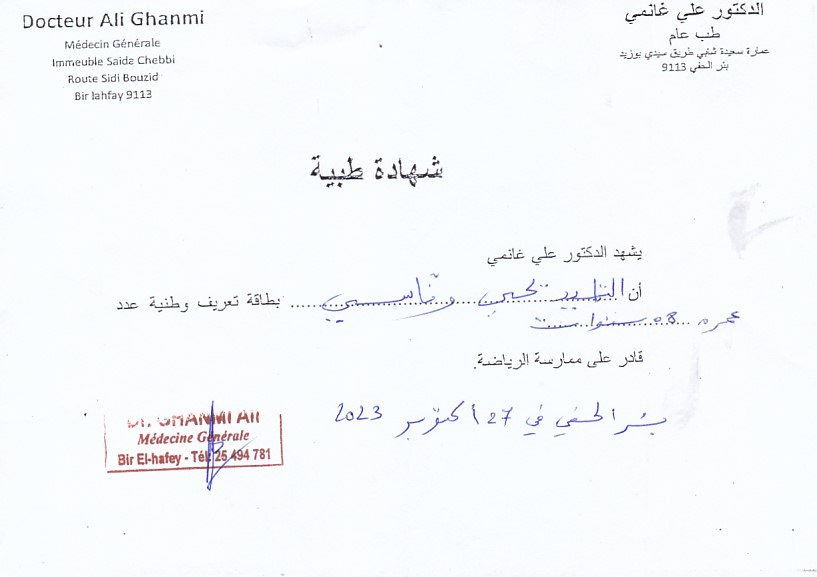 Docteur Ali Ghanmi
Médecin Générale
Immeuble Saida Chebbi
Route Sidi Bouzid
Bir lahfay 9113
الدكتور علي غانمي
طب عام
عمارة سعيدة شابي طريق سيدي بوزيد
بئر الحفي 9113
شهادة طبية
يشهد الدكتور علي غانمي
أن التلميذ يحيى ونّاسي بطاقة تعريف وطنية عدد
عمره 08 سنوات
قادر على ممارسة الرياضة.
بئر الحفي في 27 أكتوبر 2023
Dr. GHANMI Ali
Médecine Générale
Bir El-hafey - Tél: 25 494 781